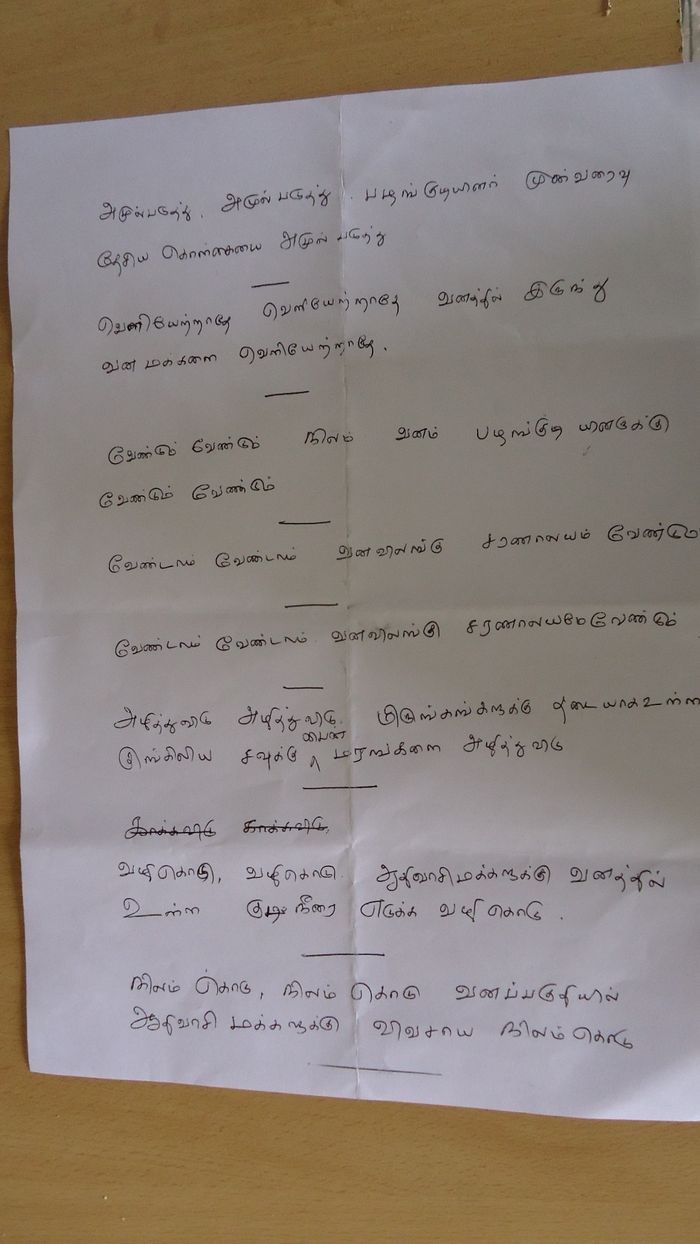 அமுல்படுத்து. அமுல் படுத்து. பழங்குடியினர் முன்வரைவு
தேசிய கொள்கையை அமுல் படுத்து
வெளியேற்றாதே வெளியேற்றாதே வனத்தில் இருந்து
வன மக்களை வெளியேற்றாதே.
வேண்டும் வேண்டும் நிலம் வனம் பழங்குடி யினருக்கு
வேண்டும் வேண்டும்
வேண்டாம் வேண்டாம் வனவிலங்கு சரணாலயம் வேண்டும்
வேண்டாம் வேண்டாம் வனவிலங்கு சரணாலயமே வேண்டும்
அழித்துவிடு அழித்துவிடு மிருகங்களுக்கு தடையாக உள்ள
இங்கிலிய சவுக்கு பைன் மரங்களை அழித்து விடு
காக்கவிடு காக்கவிடு
வழிகொடு, வழிகொடு. ஆதிவாசி மக்களுக்கு வனத்தில்
உள்ள குடி நீரை எடுக்க வழி கொடு.
நிலம் கொடு, நிலம் கொடு வனப்பகுதியில்
ஆதிவாசி மக்களுக்கு விவசாய நிலம் கொடு